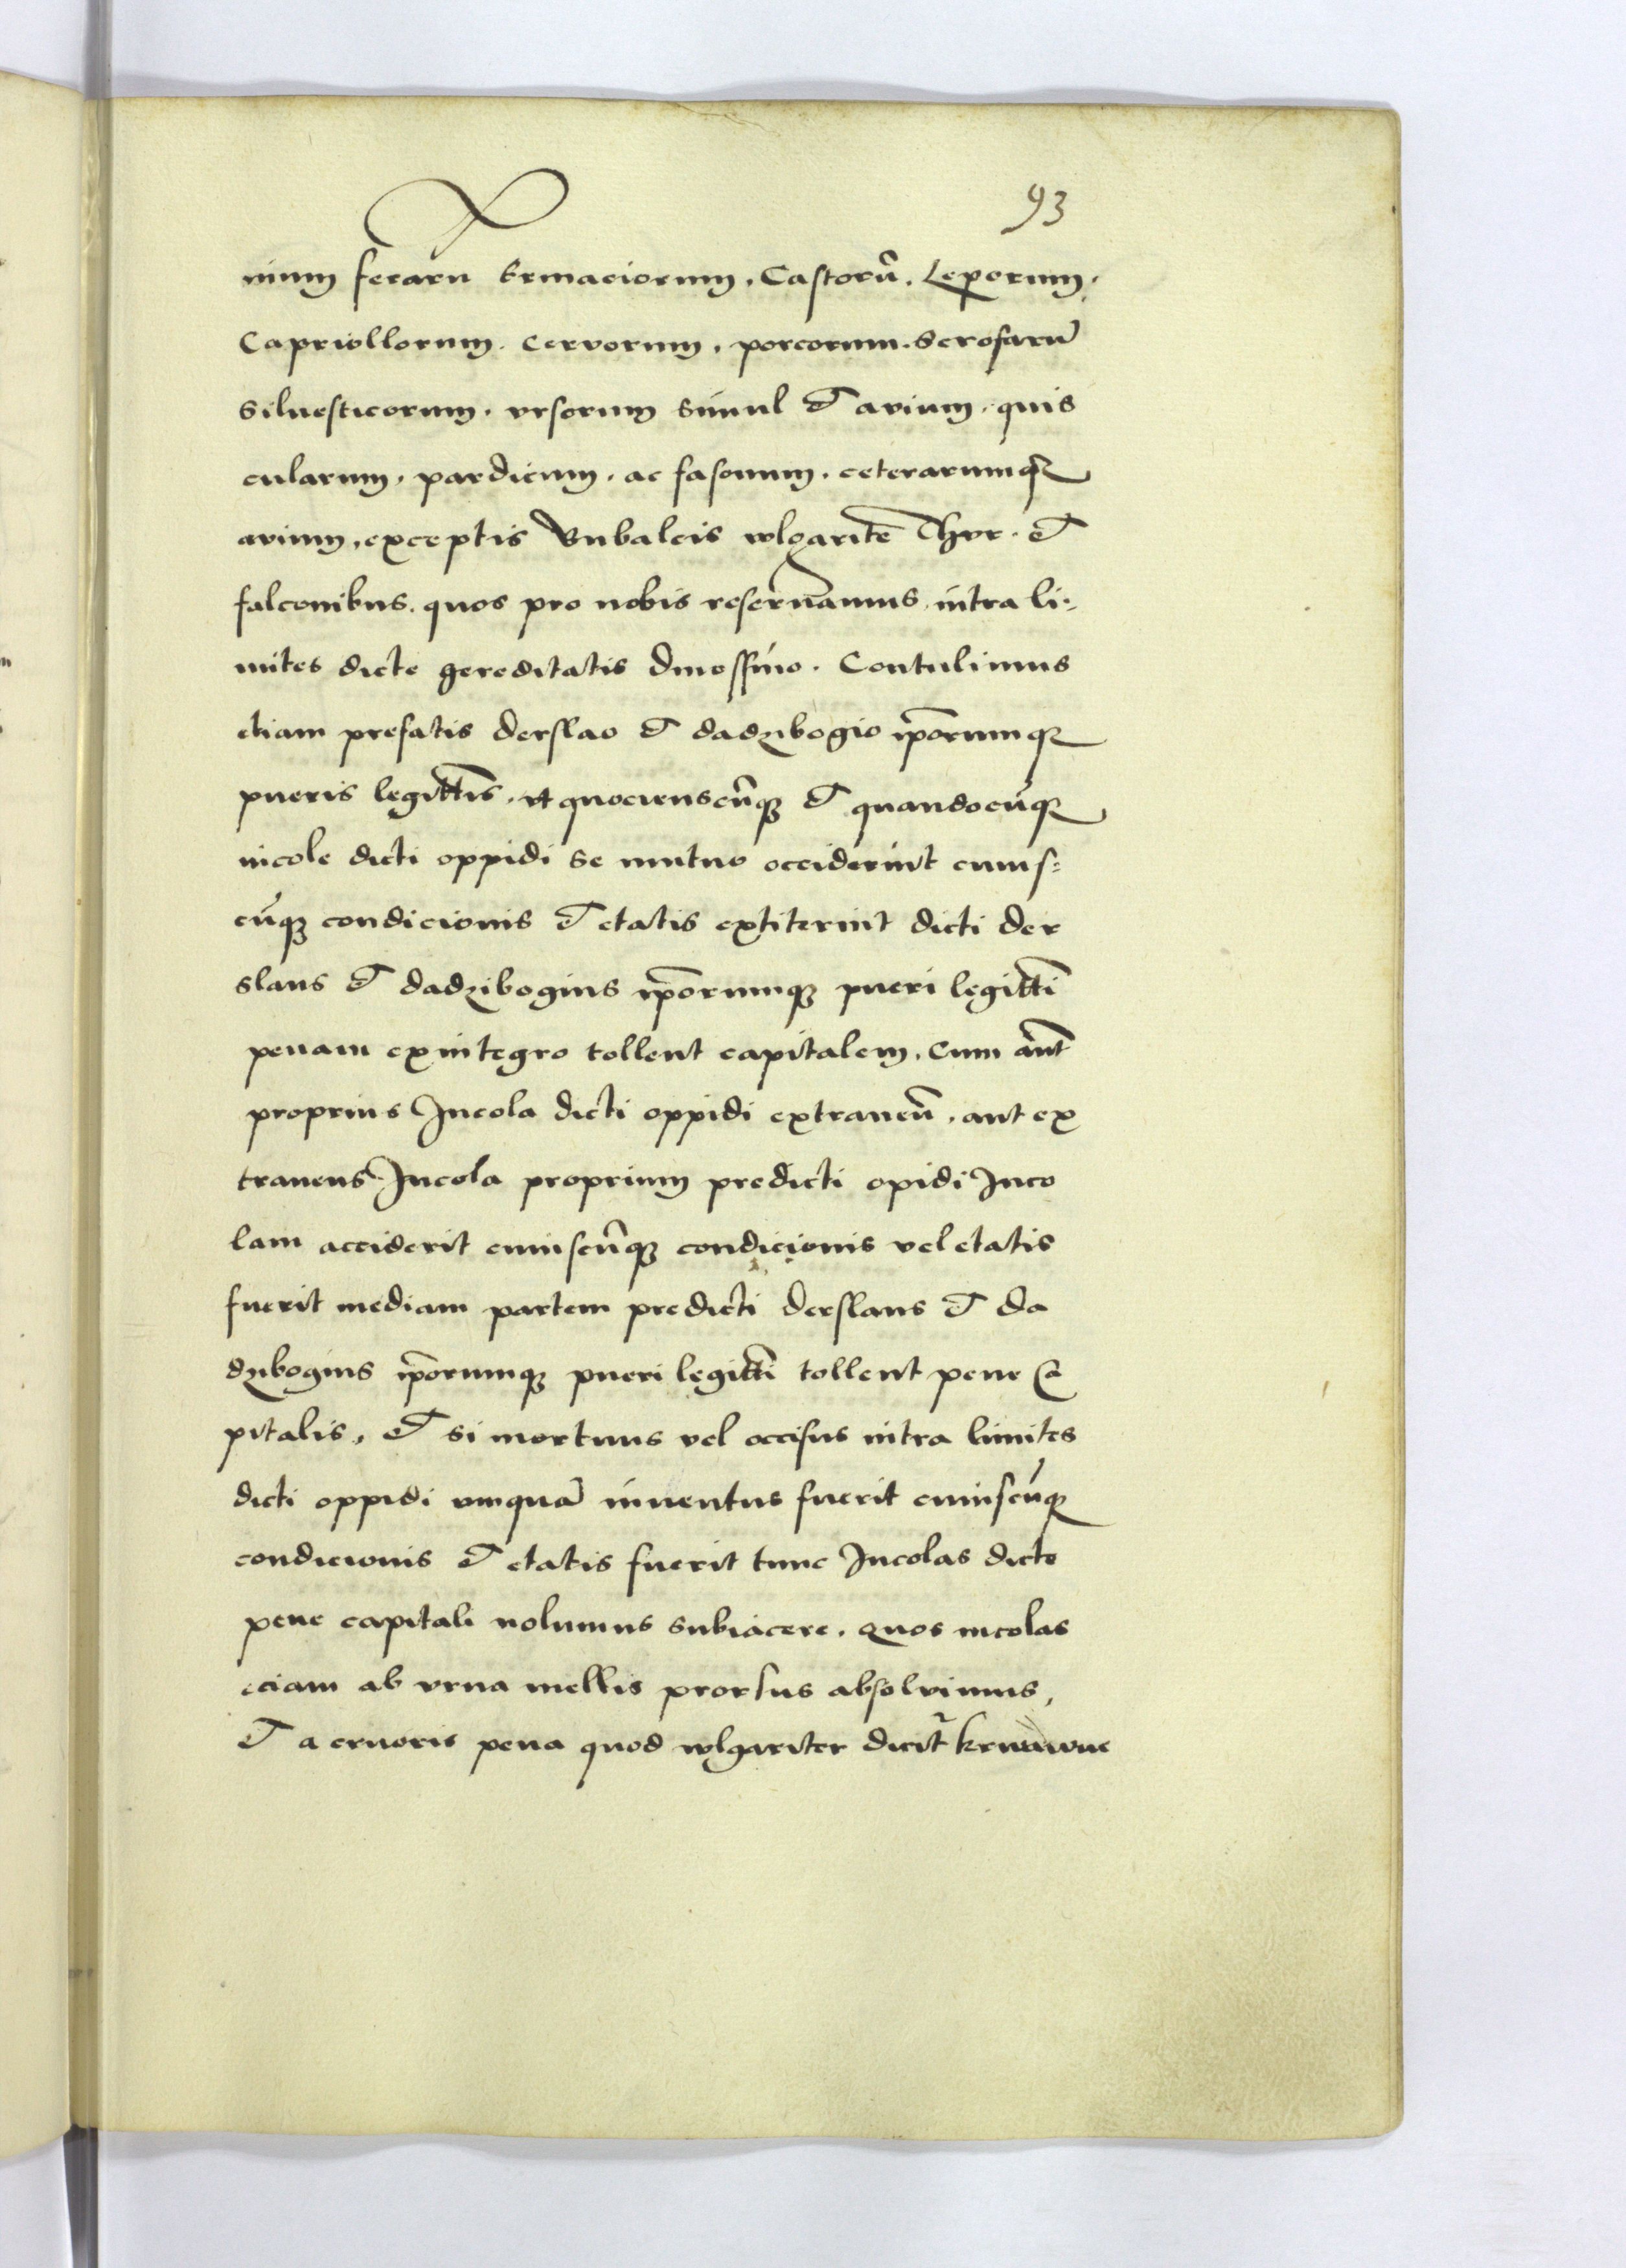 93
nium feraru Ermaciorum. Castorū. Leporum.
Capriollorum. Cervorum. porcorum. Scrofarū
Siluesticorum. vrsorum simul et avium. quis
cularum. pardicum. ac fasonum. ceterarumqȝ
avium, exceptis Bubalcis wlgarite Thvr. et
falconibus. quos pro nobis reseruamus. intra li:
mites dicte hereditatis Dmossino. Contulimus
etiam prefatis derslao et dadzibogio ip̄orumqȝ
pueris legittīs. vt quocienscūqȝ et quandocūqȝ
incole dicti oppidi se mutuo occiderint cuius:
cūqȝ condicionis et etatis extiterint dicti der
slaus et dadzibogius ip̄orumqȝ pueri legittī
penam ex integro tollent capitalem. Cum aūt
proprius Incola dicti oppidi extraneū. aut ex
traneus Incola proprium predicti opidi Inco
lam acciderit cuiuscūqȝ condicionis vel etatis
fuerit mediam partem predicti derslaus et da
dzibogius ip̄orumqȝ pueri legittī tollent pene Ca
pitalis, et si mortuus vel occisus intra limites
dicti oppidi vnquā inuentus fuerit cuiuscūqȝ
condicionis et etatis fuerit tunc Incolas dicte
pene capitali nolumus subiacere. quos incolas
eciam ab vrna mellis prorsus absolvimus,
et a cruoris pena quod wlgariter dicit̄ krwawne